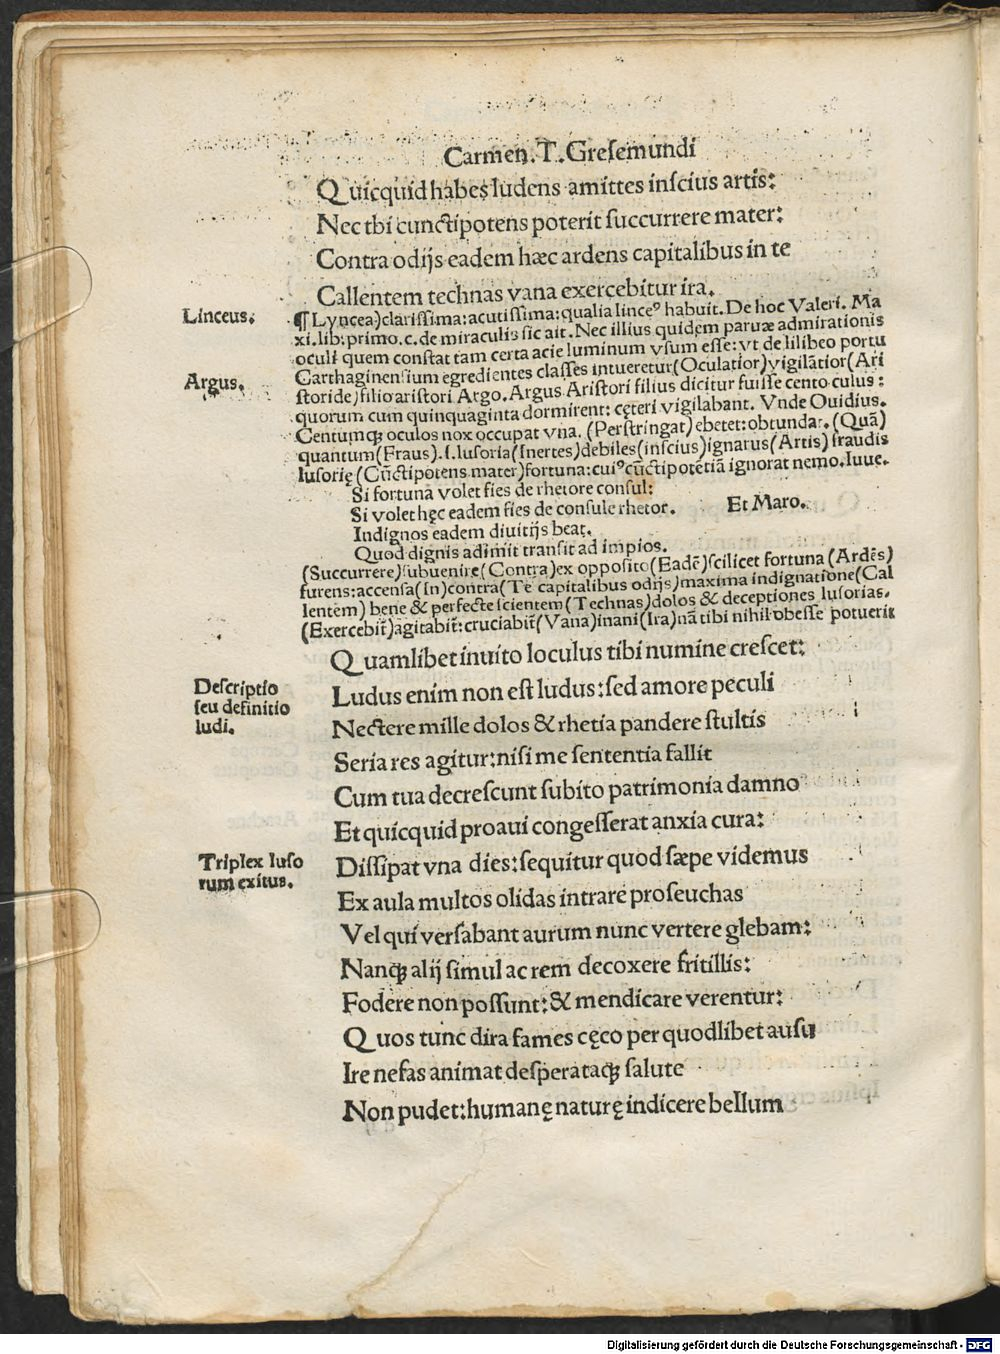 Carmen. T. Gresemundi
Quicquid habes ludens amittes inscius artis:
Nec tbi cunctipotens poterit succurrere mater:
Contra odijs eadem hæc ardens capitalibus in te
Callentem technas vana exercebitur ira.
Linceus.
¶ Lyncea)clarissima:acutissima:qualia linceꝰ habuit. De hoc Valeri. Ma
xi. lib: primo. c. de miraculis sic ait. Nec illius quidem paruæ admirationis
oculi quem constat tam certa acie luminum vsum esse: vt de lilibeo portu
Carthaginensium egredientes classes intueretur(Oculatior)vigilãtior(Ari
Argus.
storide)filio aristori Argo. Argus Aristori filius dicitur fuisse cento culus:
quorum cum quinquaginta dormirent: cęteri vigilabant. Vnde Ouidius.
Centumqꝫ oculos nox occupat vna. (Perstringat)ebetet:obtundat. (Quã)
quantum(Fraus). s. lusoria(Inertes)debiles(inscius)ignarus(Artis)fraudis
lusorię(Cũctipotens mater)fortuna:cuiꝰ cũctipotẽtiã ignorat nemo. Iuue.
Si fortuna volet fies de rhetore consul:
Si volet hęc eadem fies de consule rhetor. Et Maro.
Indignos eadem diuitijs beat.
Quod dignis adimit transit ad impios.
(Succurrere)subuenire(Contra)ex opposito(Eadẽ)scilicet fortuna(Ardẽs)
furens:accensa(in)contra(Te capitalibus odijs)maxima indignatione(Cal
lentem) bene & perfecte scientem(Technas)dolos & deceptiones lusorias.
(Exercebit̃)agitabit̃:cruciabit̃(Vana)inani(Ira)nã tibi nihil obesse potuerit
Quamlibet inuito loculus tibi numine crescet:
Descriptio
seu definitio
ludi.
Ludus enim non est ludus:sed amore peculi
Nectere mille dolos & rhetia pandere stultis
Seria res agitur:nisi me sententia fallit
Cum tua decrescunt subito patrimonia damno
Et quicquid proaui congesserat anxia cura:
Triplex luso
rum exitus.
Dissipat vna dies:sequitur quod sæpe videmus
Ex aula multos olidas intrare proseuchas
Vel qui versabant aurum nunc vertere glebam:
Nanqꝫ alij simul ac rem decoxere fritillis:
Fodere non possunt:& mendicare verentur:
Quos tunc dira fames cęco per quodlibet ausu
Ire nefas animat desperataqꝫ salute
Non pudet:humanę naturę indicere bellum
Digitalisierung gefördert durch die Deutsche Forschungsgemeinschaft - DFG